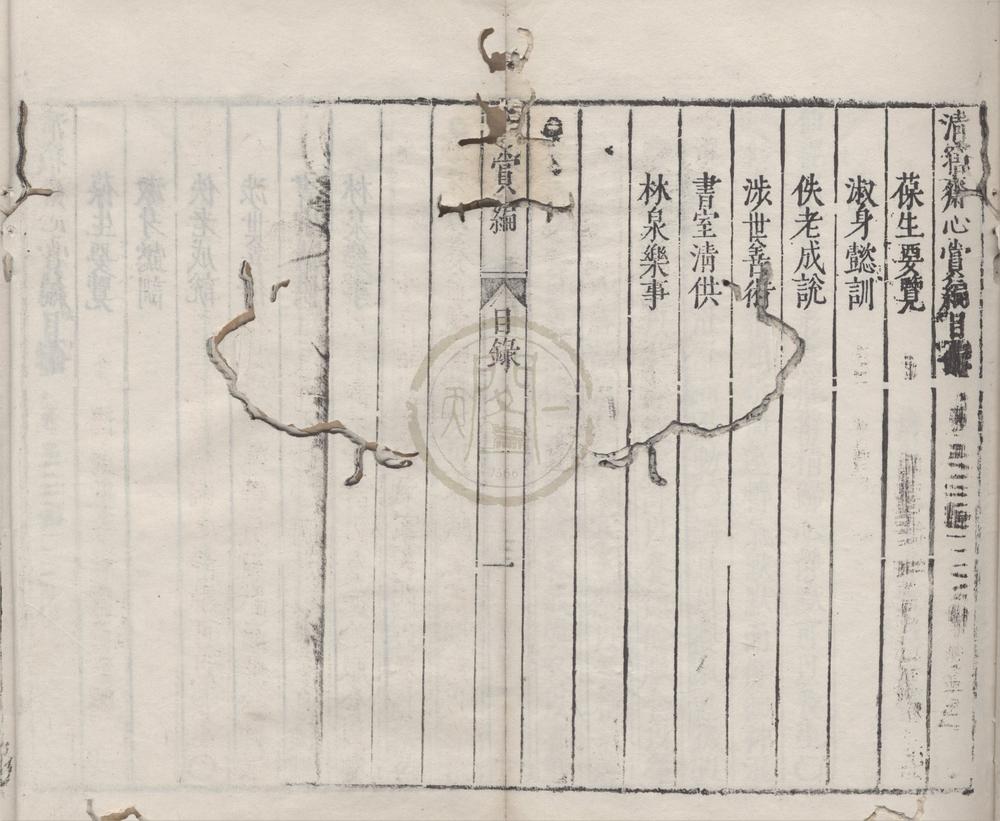 清寤齋心賞編目錄
葆生要覽
淑身懿訓
佚老成說
涉世善術
書室清供
林泉樂事
賞編
目錄
一